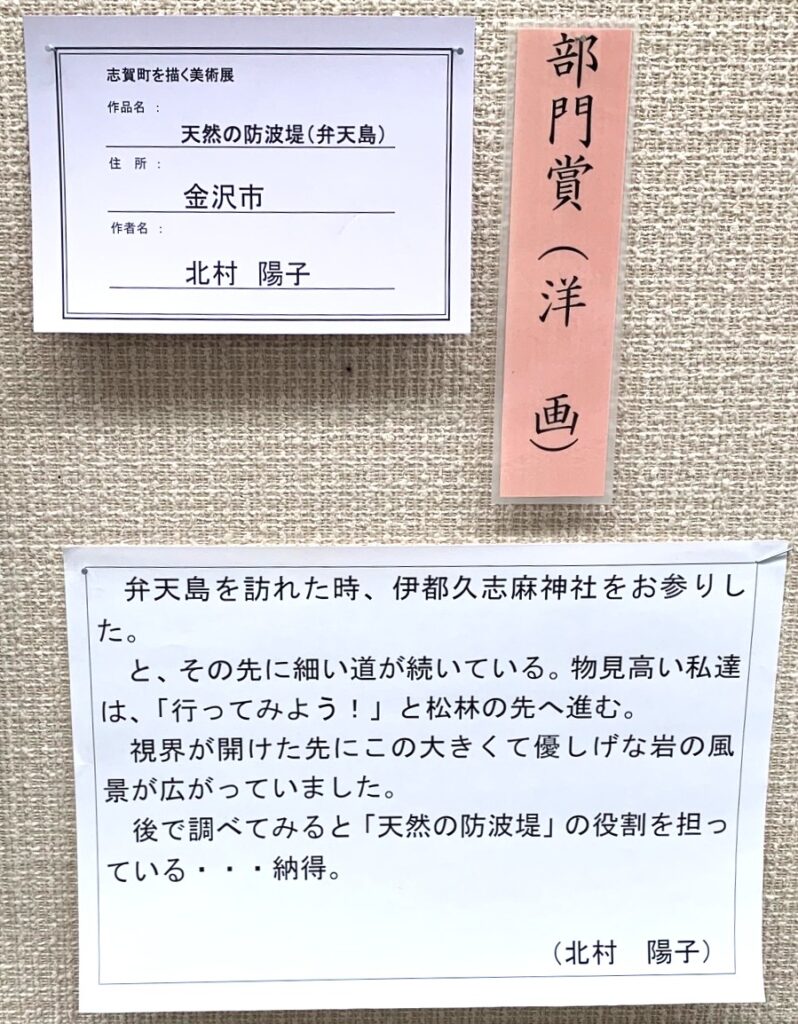 志賀町を描く美術展
作品名 :
天然の防波堤(弁天島)
住 所 :
金沢市
作者名 :
北村 陽子
部門賞(洋 画)
弁天島を訪れた時、伊都久志麻神社をお参りし
た。
と、その先に細い道が続いている。物見高い私達
は、「行ってみよう!」と松林の先へ進む。
視界が開けた先にこの大きくて優しげな岩の風
景が広がっていました。
後で調べてみると「天然の防波堤」の役割を担っ
ている・・・納得。
(北村 陽子)